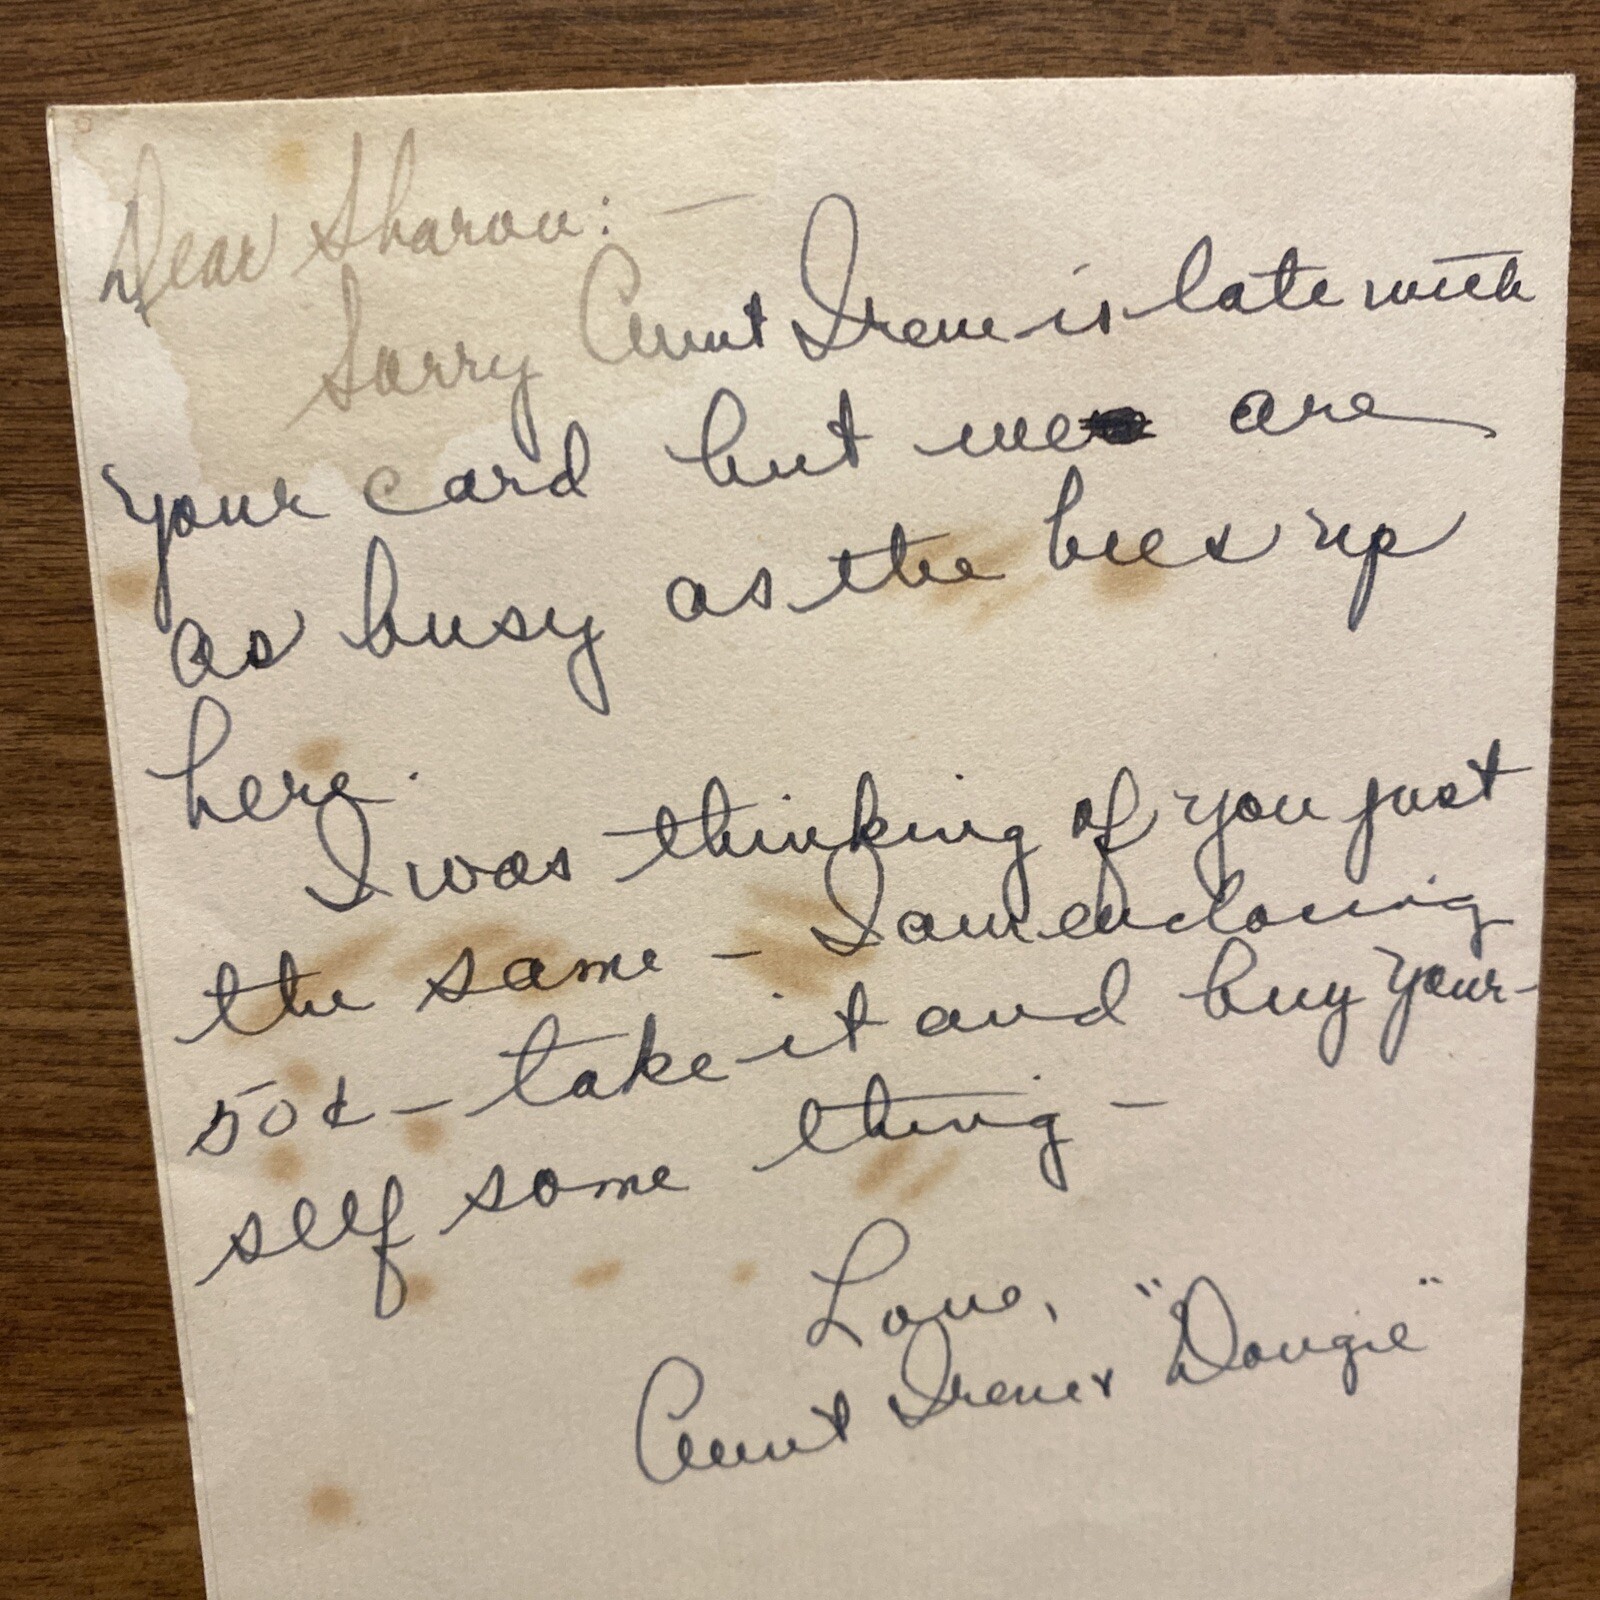 Dear Sharon: —
Sorry Aunt Irene is late with
your card but we are
as busy as the bees up
here.
I was thinking of you just
the same – I am enclosing
50¢ – take it and buy your-
self some thing –
Love,
Aunt Irene & "Dougie"